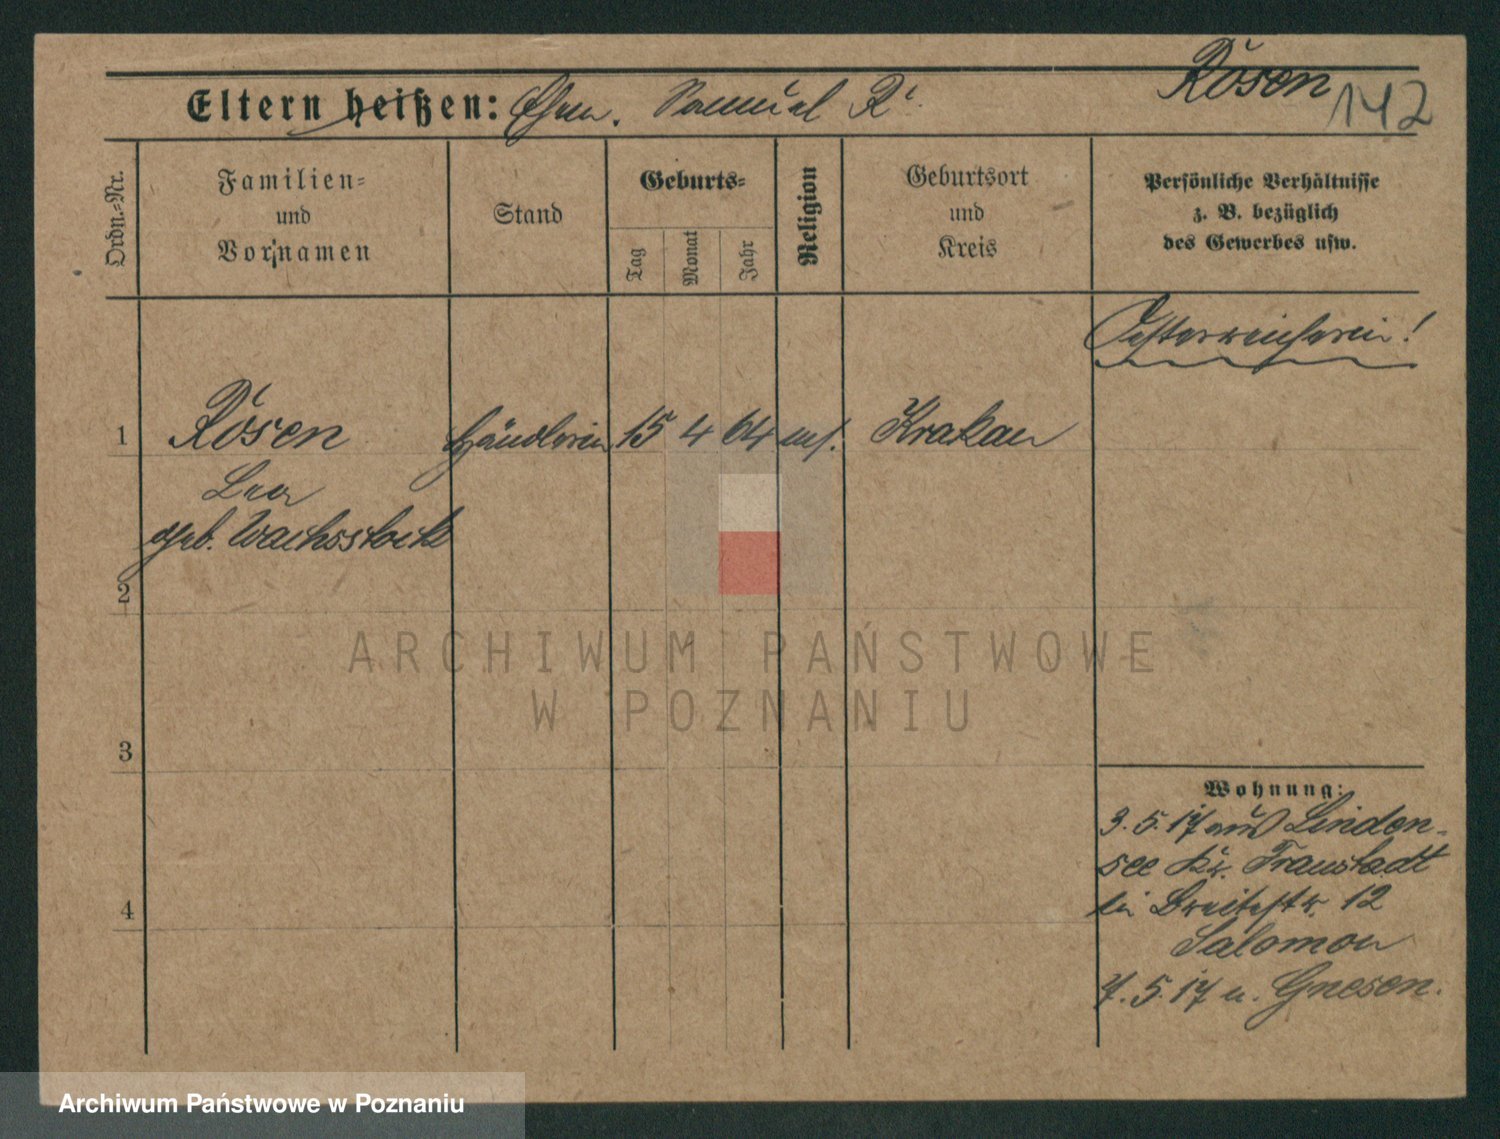 Rösen 142
Eltern heißen: Ehem. Samuel R.
Ordn.-Nr.
Familien-
und
Vornamen
Stand
Geburts-
Tag
Monat
Jahr
Religion
Geburtsort
und
Kreis
Persönliche Verhältnisse
z. B. bezüglich
des Gewerbes usw.
Oesterreicherin!
1 Rösen Händlerin 15 4 64 mos. Krakau
Lea
geb. Wachsstock
2
3
4
Wohnung:
3.5.17 aus Linden-
see Kr. Fraustadt
bei Breitestr. 12
Salomon
7.5.17 n. Gnesen.
ARCHIWUM PAŃSTWOWE
W POZNANIU
Archiwum Państwowe w Poznaniu